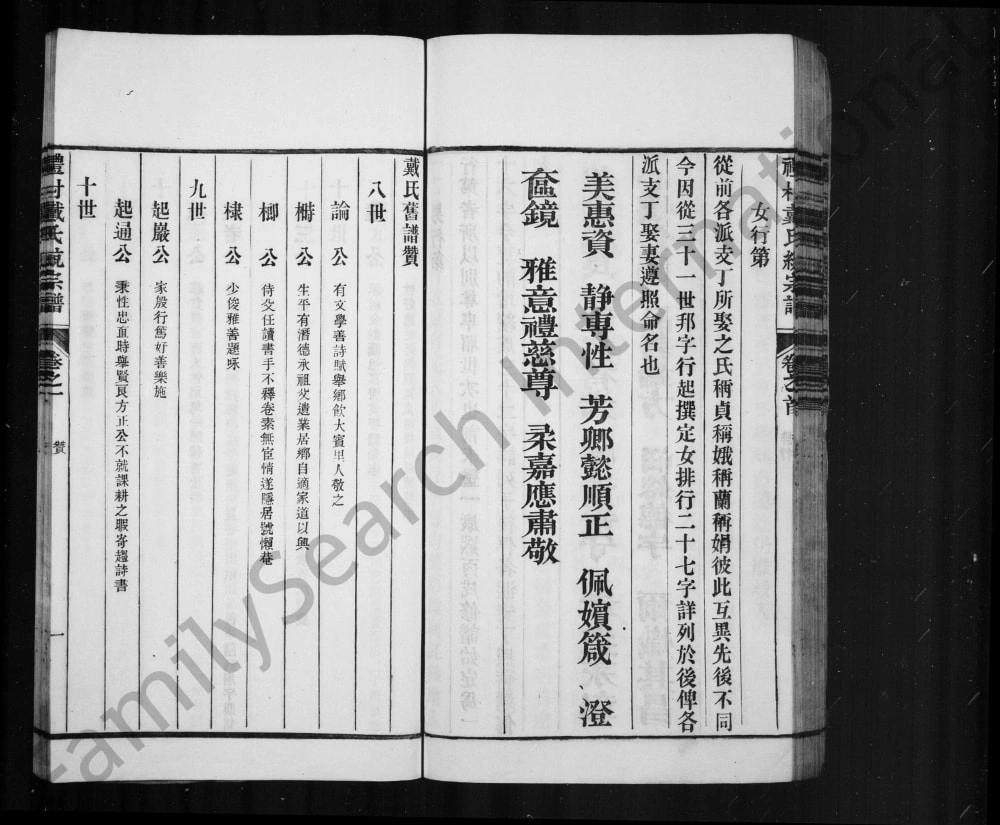 禮村戴氏統宗譜 卷之首
女行第
從前各派支丁所娶之氏稱貞稱娥稱蘭稱娟彼此互異先後不同
今因從三十一世邦字行起撰定女排行二十七字詳列於後俾各
派支丁娶妻遵照命名也
美惠資 靜專性 芳卿懿順正 佩嬪箴 澄
奩鏡 雅意禮慈尊 柔嘉應肅敬
戴氏舊譜贊
八世
論公 有文學善詩賦舉鄉飲大賓里人敬之
樹公 生平有潛德承祖父遺業居鄉自適家道以興
柳公 侍父任讀書手不釋卷素無宦情遂隱居號懶巷
棣公 少俊雅善題咏
九世
起嚴公 家殷行篤好善樂施
起通公 秉性忠直時舉賢良方正公不就課耕之暇寄趨詩書
十世
禮村戴氏統宗譜 卷之一 贊 一
FamilySearch International